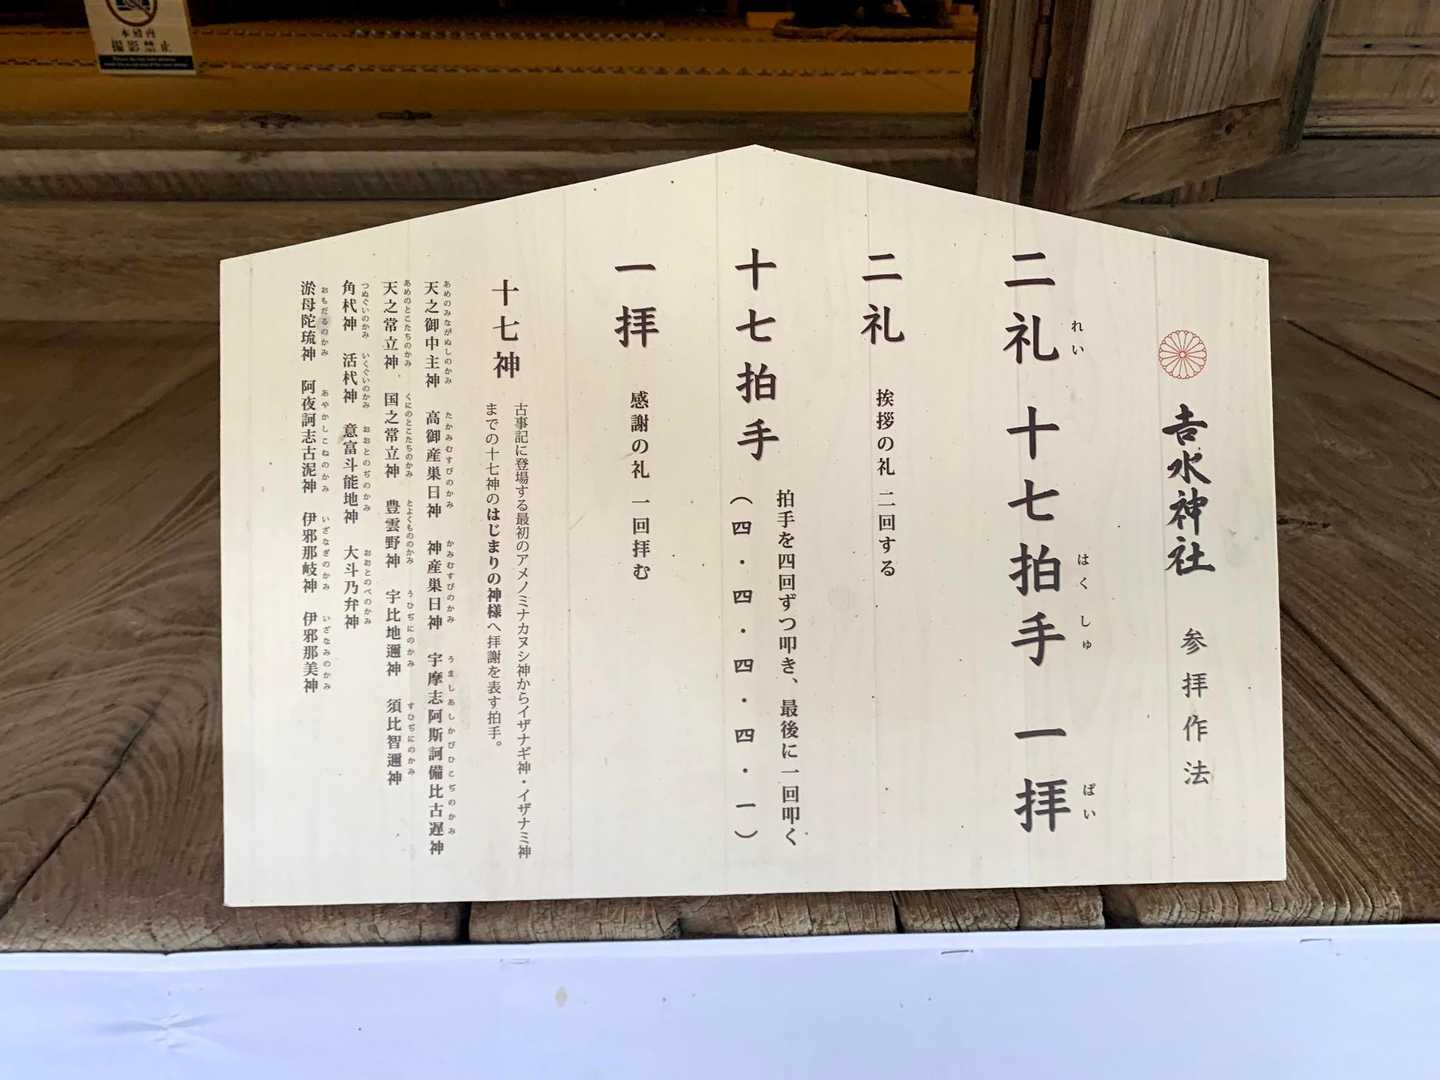 𠮷水神社 参拝作法
二礼 十七拍手 一拝
れい はくしゅ ぱい
二礼 挨拶の礼 二回する
十七拍手 拍手を四回ずつ叩き、最後に一回叩く
(四・四・四・四・一)
一拝 感謝の礼 一回拝む
十七神 古事記に登場する最初のアメノミナカヌシ神からイザナギ神・イザナミ神
までの十七神のはじまりの神様へ拝謝を表す拍手。
あめのみながぬしのかみ たかみむすびのかみ かみむすびのかみ うましあしかびひこぢのかみ
天之御中主神 高御産巣日神 神産巣日神 宇摩志阿斯訶備比古遅神
あめのとこたちのかみ くにのとこたちのかみ とよくもののかみ うひぢにのかみ すひぢにのかみ
天之常立神 国之常立神 豊雲野神 宇比地邇神 須比智邇神
つぬぐいのかみ いくぐいのかみ おおとのぢのかみ おおとのべのかみ
角杙神 活杙神 意富斗能地神 大斗乃弁神
おもだるのかみ あやかしこねのかみ いざなぎのかみ いざなみのかみ
淤母陀琉神 阿夜訶志古泥神 伊邪那岐神 伊邪那美神
撮影禁止